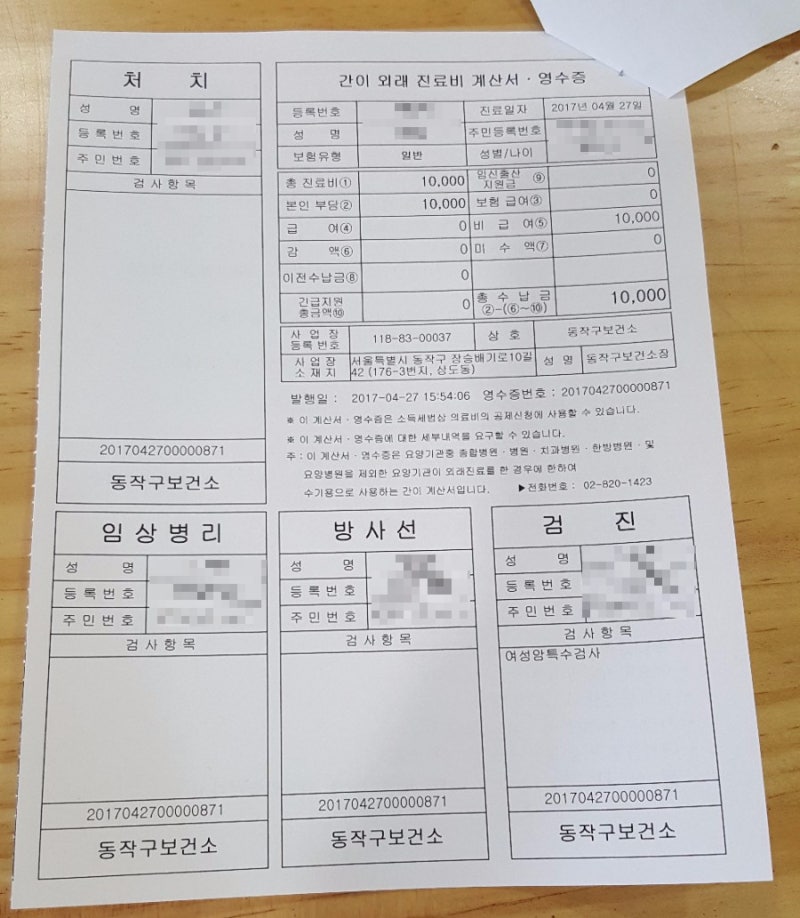 처 치
성 명
등 록 번 호
주 민 번 호
검 사 항 목
2017042700000871
동작구보건소
간이 외래 진료비 계산서 · 영수증
등록번호 진료일자 2017년 04월 27일
성 명 주민등록번호
보험유형 일반 성별/나이
총 진료비① 10,000 임신출산 지원금 ⑨ 0
본인 부담② 10,000 보험 급여③ 0
급 여④ 0 비 급 여⑤ 10,000
감 액⑥ 0 미 수 액⑦ 0
이전수납금⑧ 0
긴급지원 총금액⑩ 0 총 수 납 금 ②-(⑥~⑩) 10,000
사 업 장 등록 번호 118-83-00037 상 호 동작구보건소
사 업 장 소 재 지 서울특별시 동작구 장승배기로10길 42 (176-3번지, 상도동) 성 명 동작구보건소장
발행일 : 2017-04-27 15:54:06 영수증번호 : 2017042700000871
※ 이 계산서 · 영수증은 소득세법상 의료비의 공제신청에 사용할 수 있습니다.
※ 이 계산서 · 영수증에 대한 세부내역을 요구할 수 있습니다.
주 : 이 계산서 · 영수증은 요양기관중 종합병원 · 병원 · 치과병원 · 한방병원 · 및
요양병원을 제외한 요양기관이 외래진료를 한 경우에 한하여
수기용으로 사용하는 간이 계산서입니다. ▶전화번호 : 02-820-1423
임 상 병 리
성 명
등 록 번 호
주 민 번 호
검 사 항 목
2017042700000871
동작구보건소
방 사 선
성 명
등 록 번 호
주 민 번 호
검 사 항 목
2017042700000871
동작구보건소
검 진
성 명
등 록 번 호
주 민 번 호
검 사 항 목
여성암특수검사
2017042700000871
동작구보건소